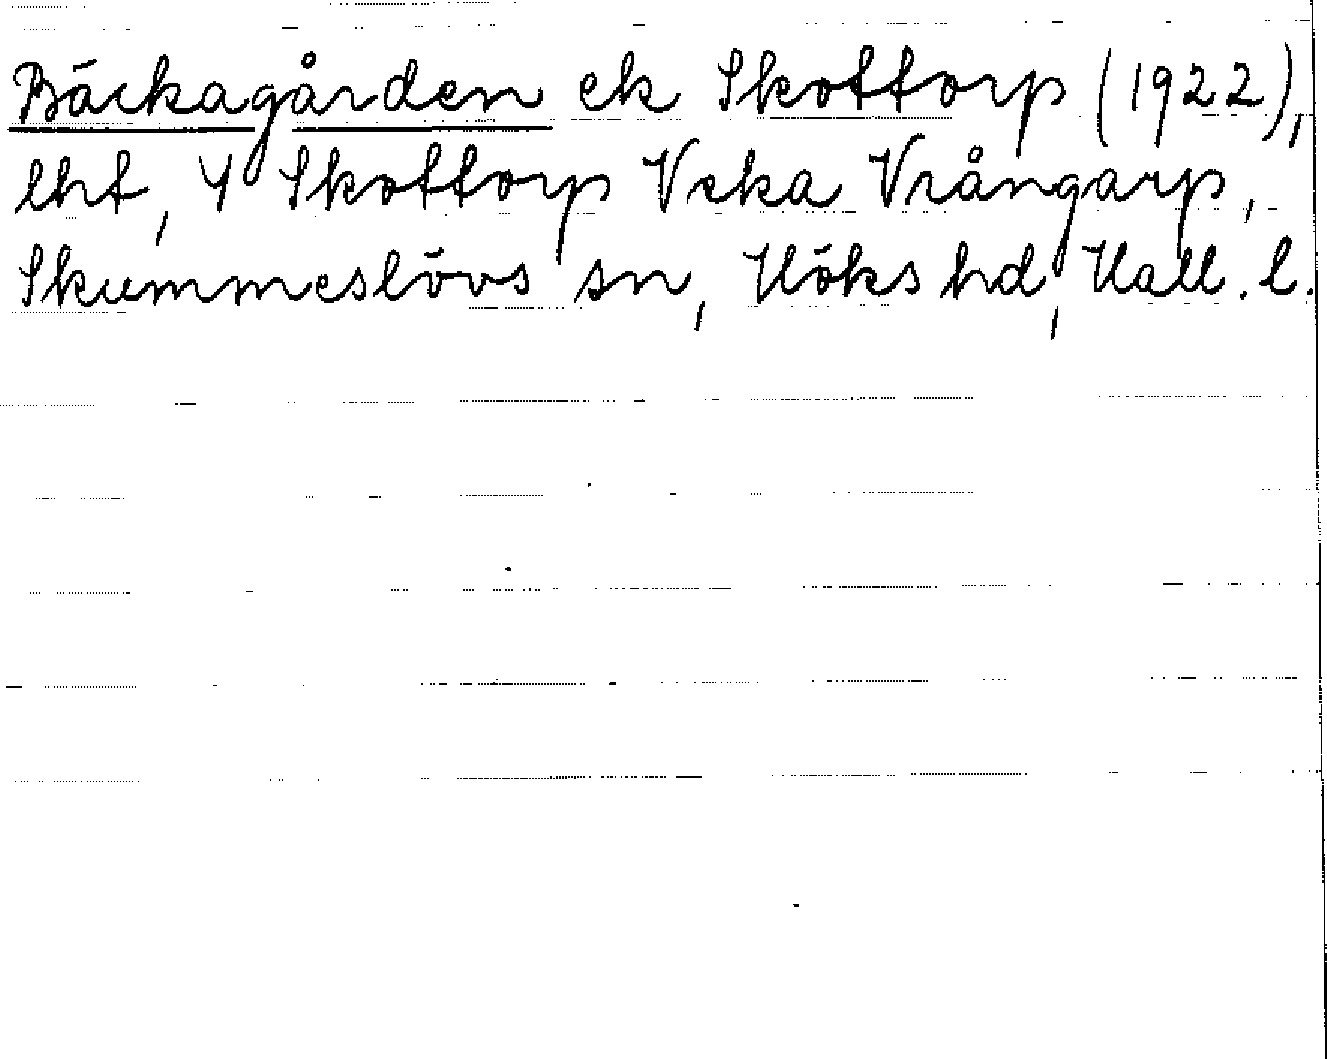 Bäckagården ek Skottorp (1922),
lht, 4° Skottorp Veka Vrångarp,
Skummeslövs sn, Höks hd, Hall. l.